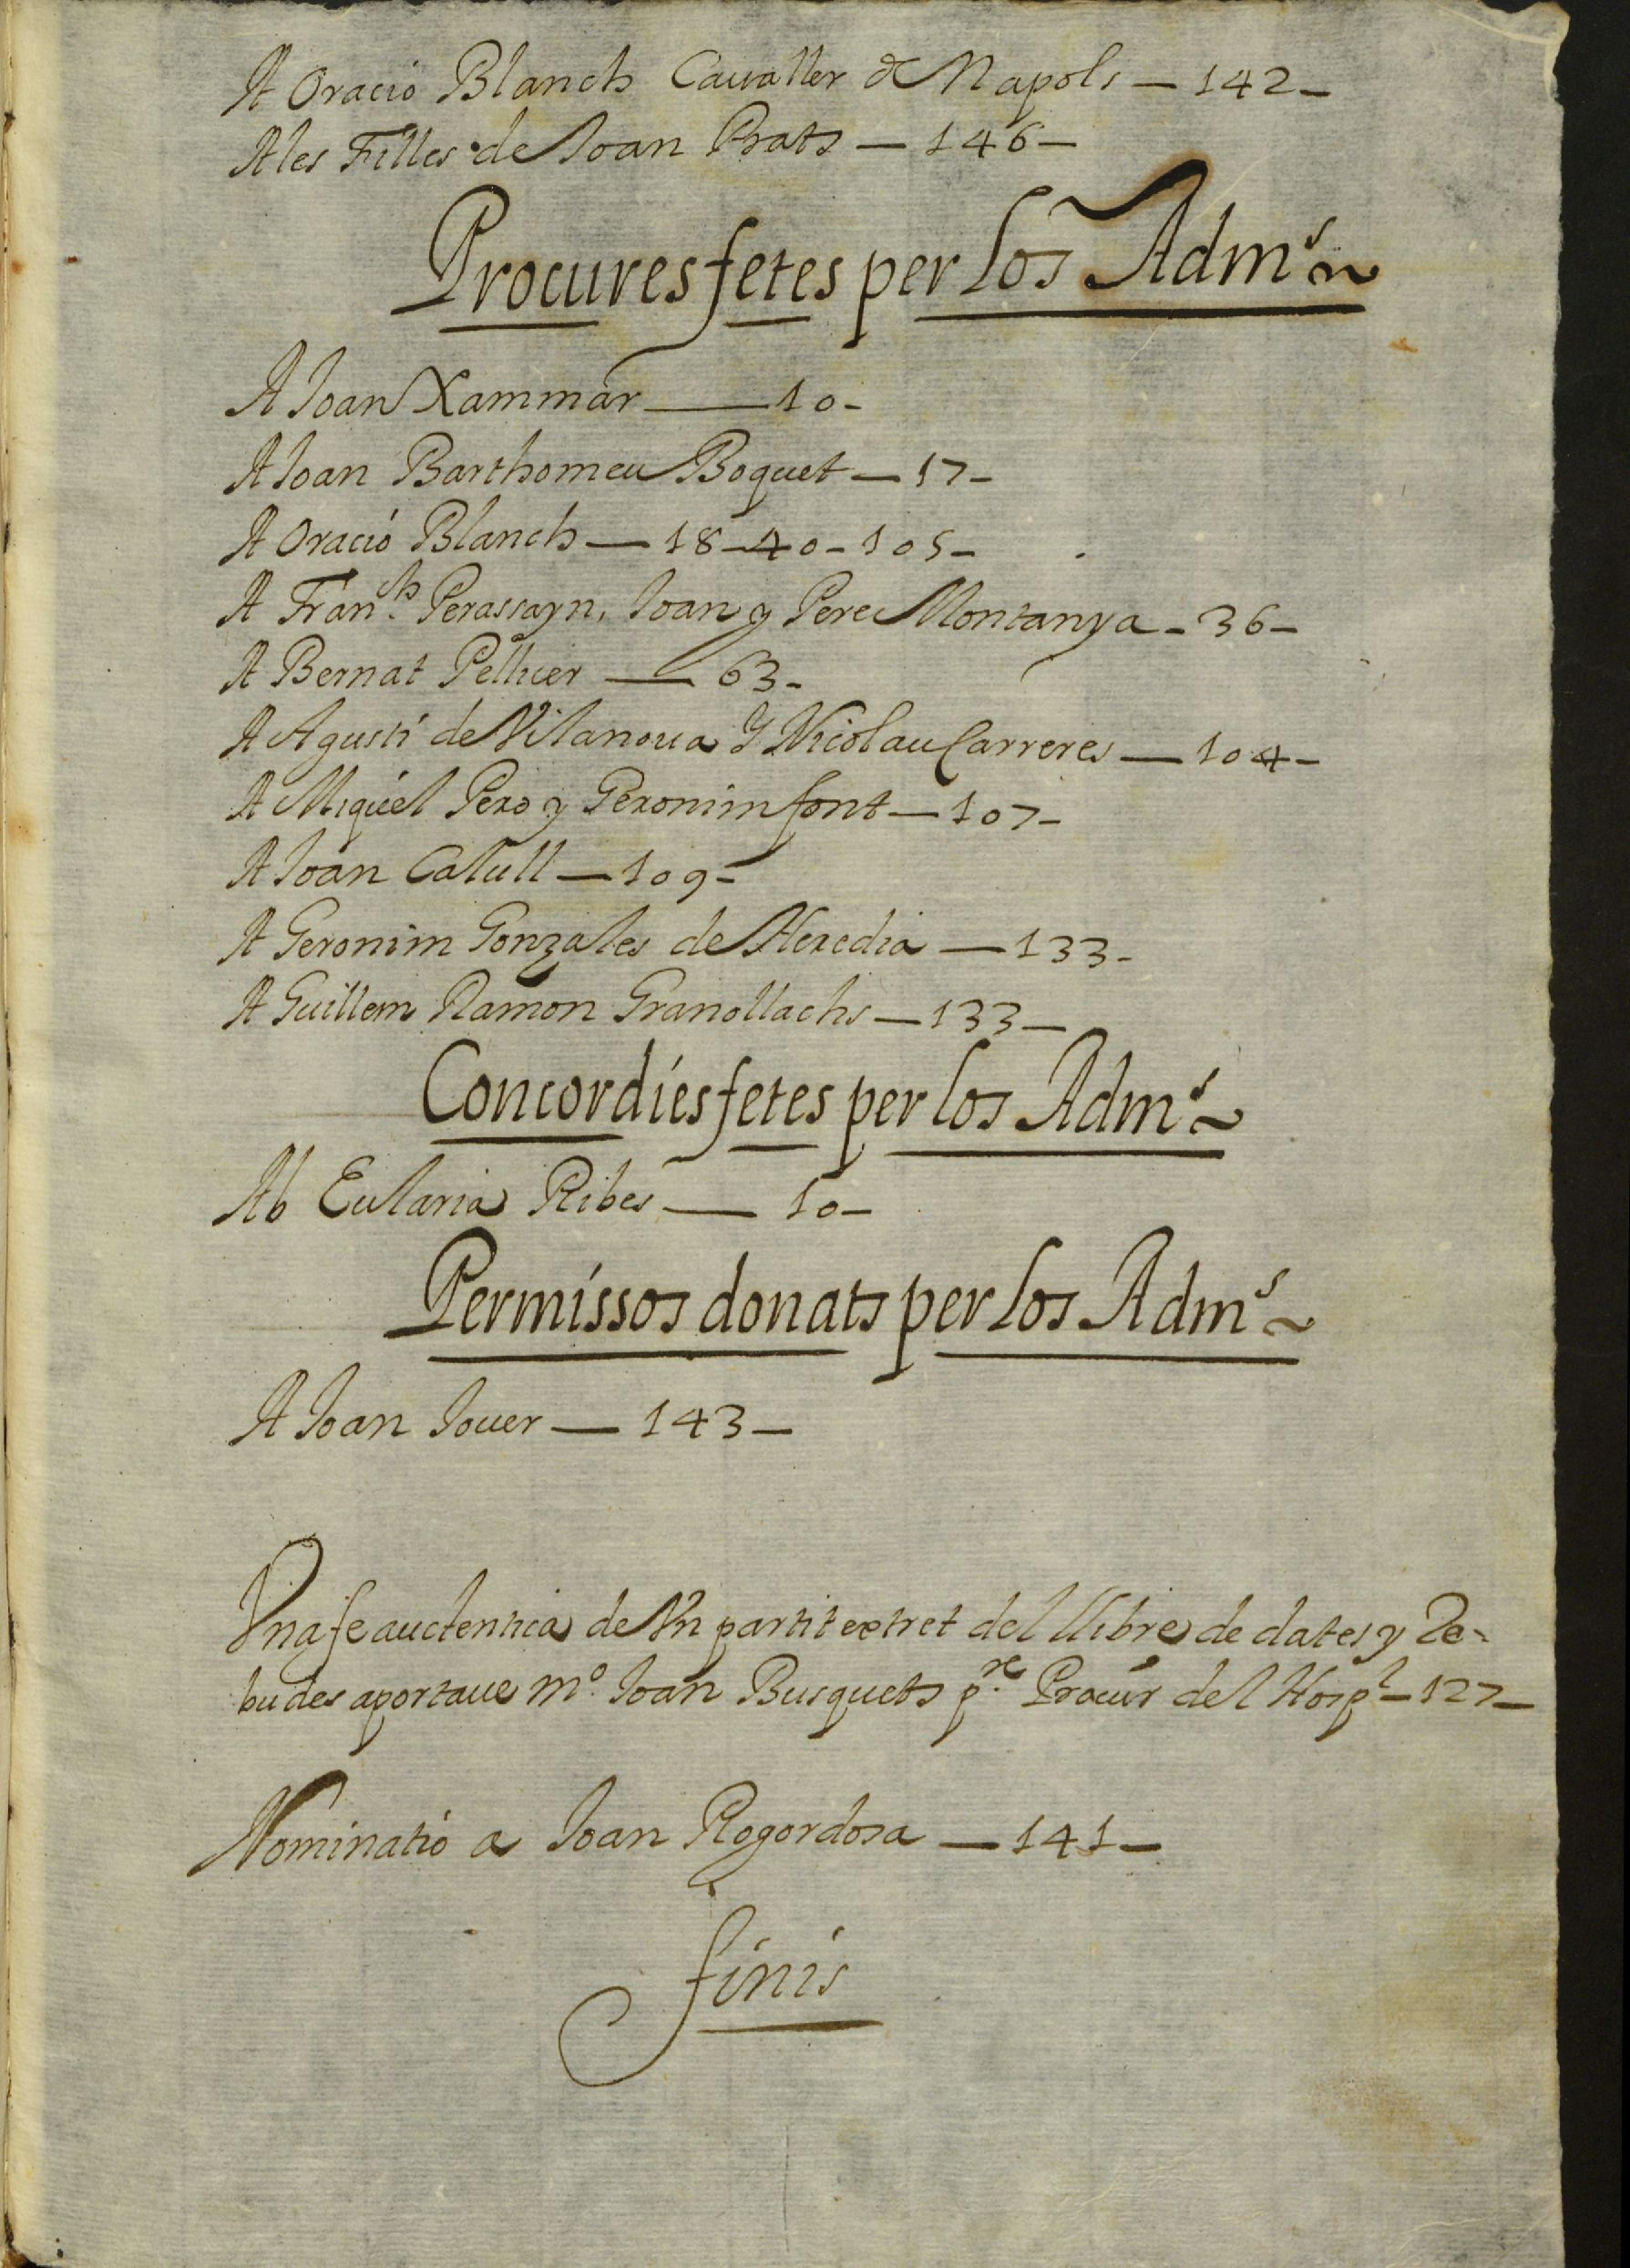 A Oració Blanch Caualler de Napols — 142 —
A les Filles de Joan Prats — 146 —
Procures fetes per los Adm.s
A Joan Xammar — 10 -
A Joan Barthomeu Boquet — 17 -
A Oració Blanch — 18 - 40 - 105 -
A Fran.ch Perassayn, Joan y Pere Montanya - 36 -
A Bernat Pellicer — 63 -
A Agustí de Vilanoua Y Nicolau Carreres — 104 -
A Miquel Pero y Geronim font — 107 -
A Joan Catull — 109 -
A Geronim Gonzales de Heredia — 133 -
A Guillem Ramon Granollachs — 133 —
Concordies fetes per los Adm.s
Ab Eularia Ribes — 10 —
Permissos donats per los Adm.s
A Joan Jouer — 143 —
Vna fe auctentica de Vn partit extret del llibre de dates y Re-
budes aportaue M.o Joan Busquets p.re Procur del Hosp.l — 127 —
Nominatió a Joan Rogordosa — 141 —
finis